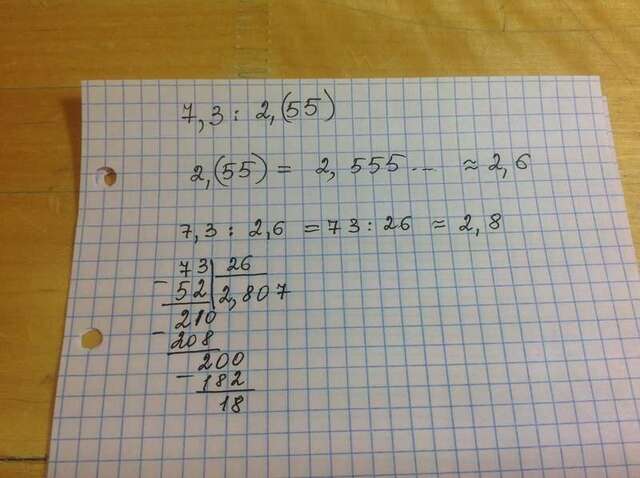 7,3 : 2,(55)
2,(55) = 2,555... ≈ 2,6
7,3 : 2,6 = 73 : 26 ≈ 2,8
73 | 26
- 52 | 2,807
210
- 208
200
- 182
18